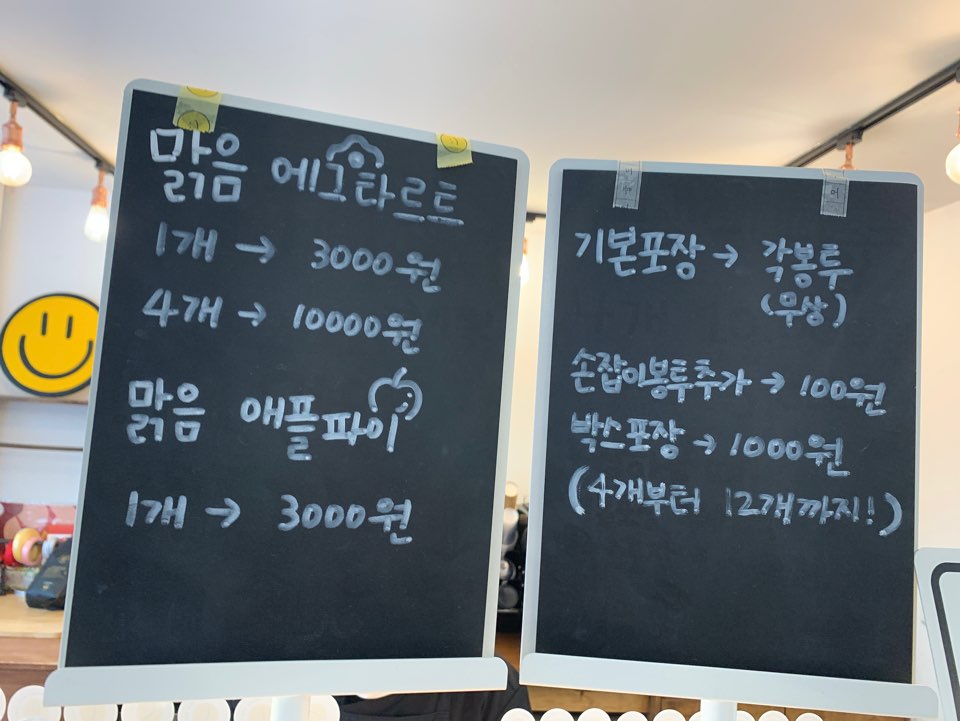 맑음 에그타르트
1개 → 3000원
4개 → 10000원
맑음 애플파이
1개 → 3000원
기본포장 → 각봉투
(무상)
손잡이봉투추가 → 100원
박스포장 → 1000원
(4개부터 12개까지!)